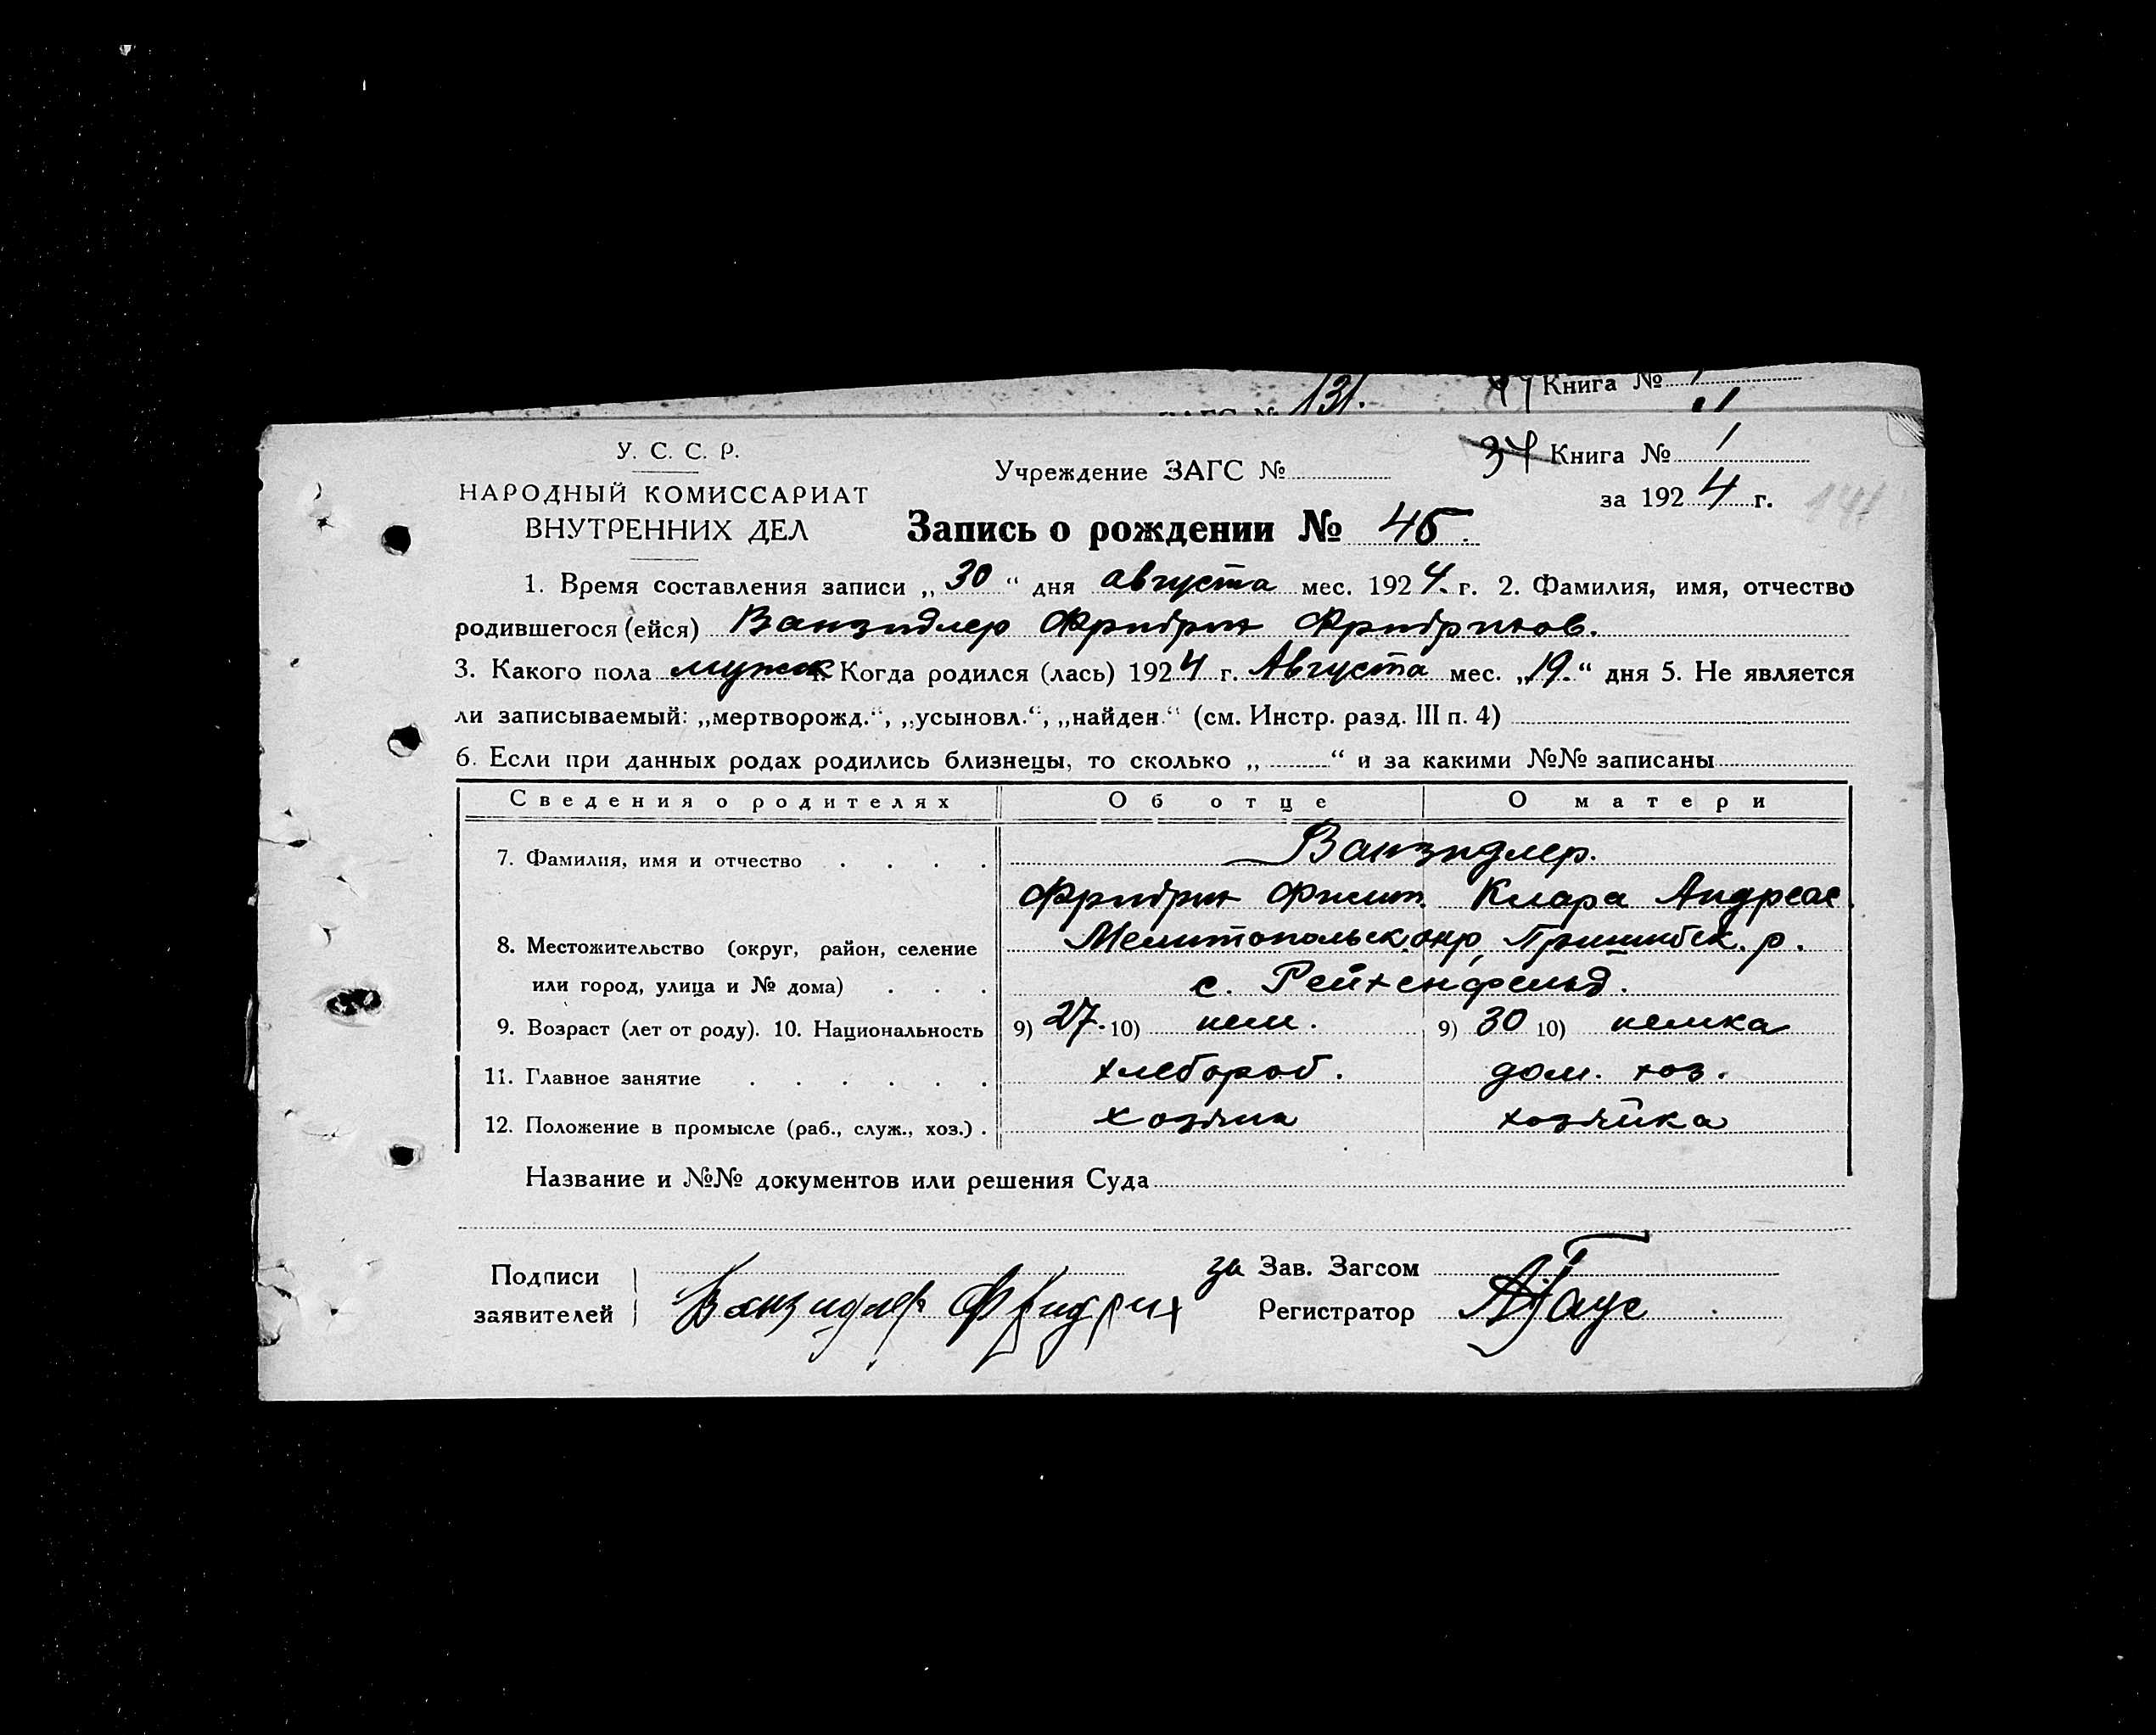 131. Книга №
У. С. С. Р.
НАРОДНЫЙ КОМИССАРИАТ
ВНУТРЕННИХ ДЕЛ
Учреждение ЗАГС №
34 Книга № 1
за 1924 г.
Запись о рождении № 45.
1. Время составления записи „30“ дня августа мес. 1924. г. 2. Фамилия, имя, отчество
родившегося (ейся) Ванзидлер Фридрих Фридрихов.
3. Какого пола мужск 4. Когда родился (лась) 1924 г. Августа мес. „19.“ дня 5. Не является
ли записываемый: „мертворожд.“, „усыновл.“, „найден.“ (см. Инстр. разд. III п. 4)
6. Если при данных родах родились близнецы, то сколько „ “ и за какими №№ записаны
Сведения о родителях Об отце О матери
7. Фамилия, имя и отчество . . . . Ванзидлер.
Фридрих Филип. Клара Андреас.
8. Местожительство (округ, район, селение Мелитопольск. окр, Пришибск. р.
или город, улица и № дома) . . . с. Рейхенфельд.
9. Возраст (лет от роду). 10. Национальность 9) 27. 10) нем. 9) 30 10) немка
11. Главное занятие . . . . . . хлебороб. дом. хоз.
12. Положение в промысле (раб., служ., хоз.) . хозяин хозяйка
Название и №№ документов или решения Суда
Подписи
заявителей Ванзидлер Фридрих
за Зав. Загсом
Регистратор